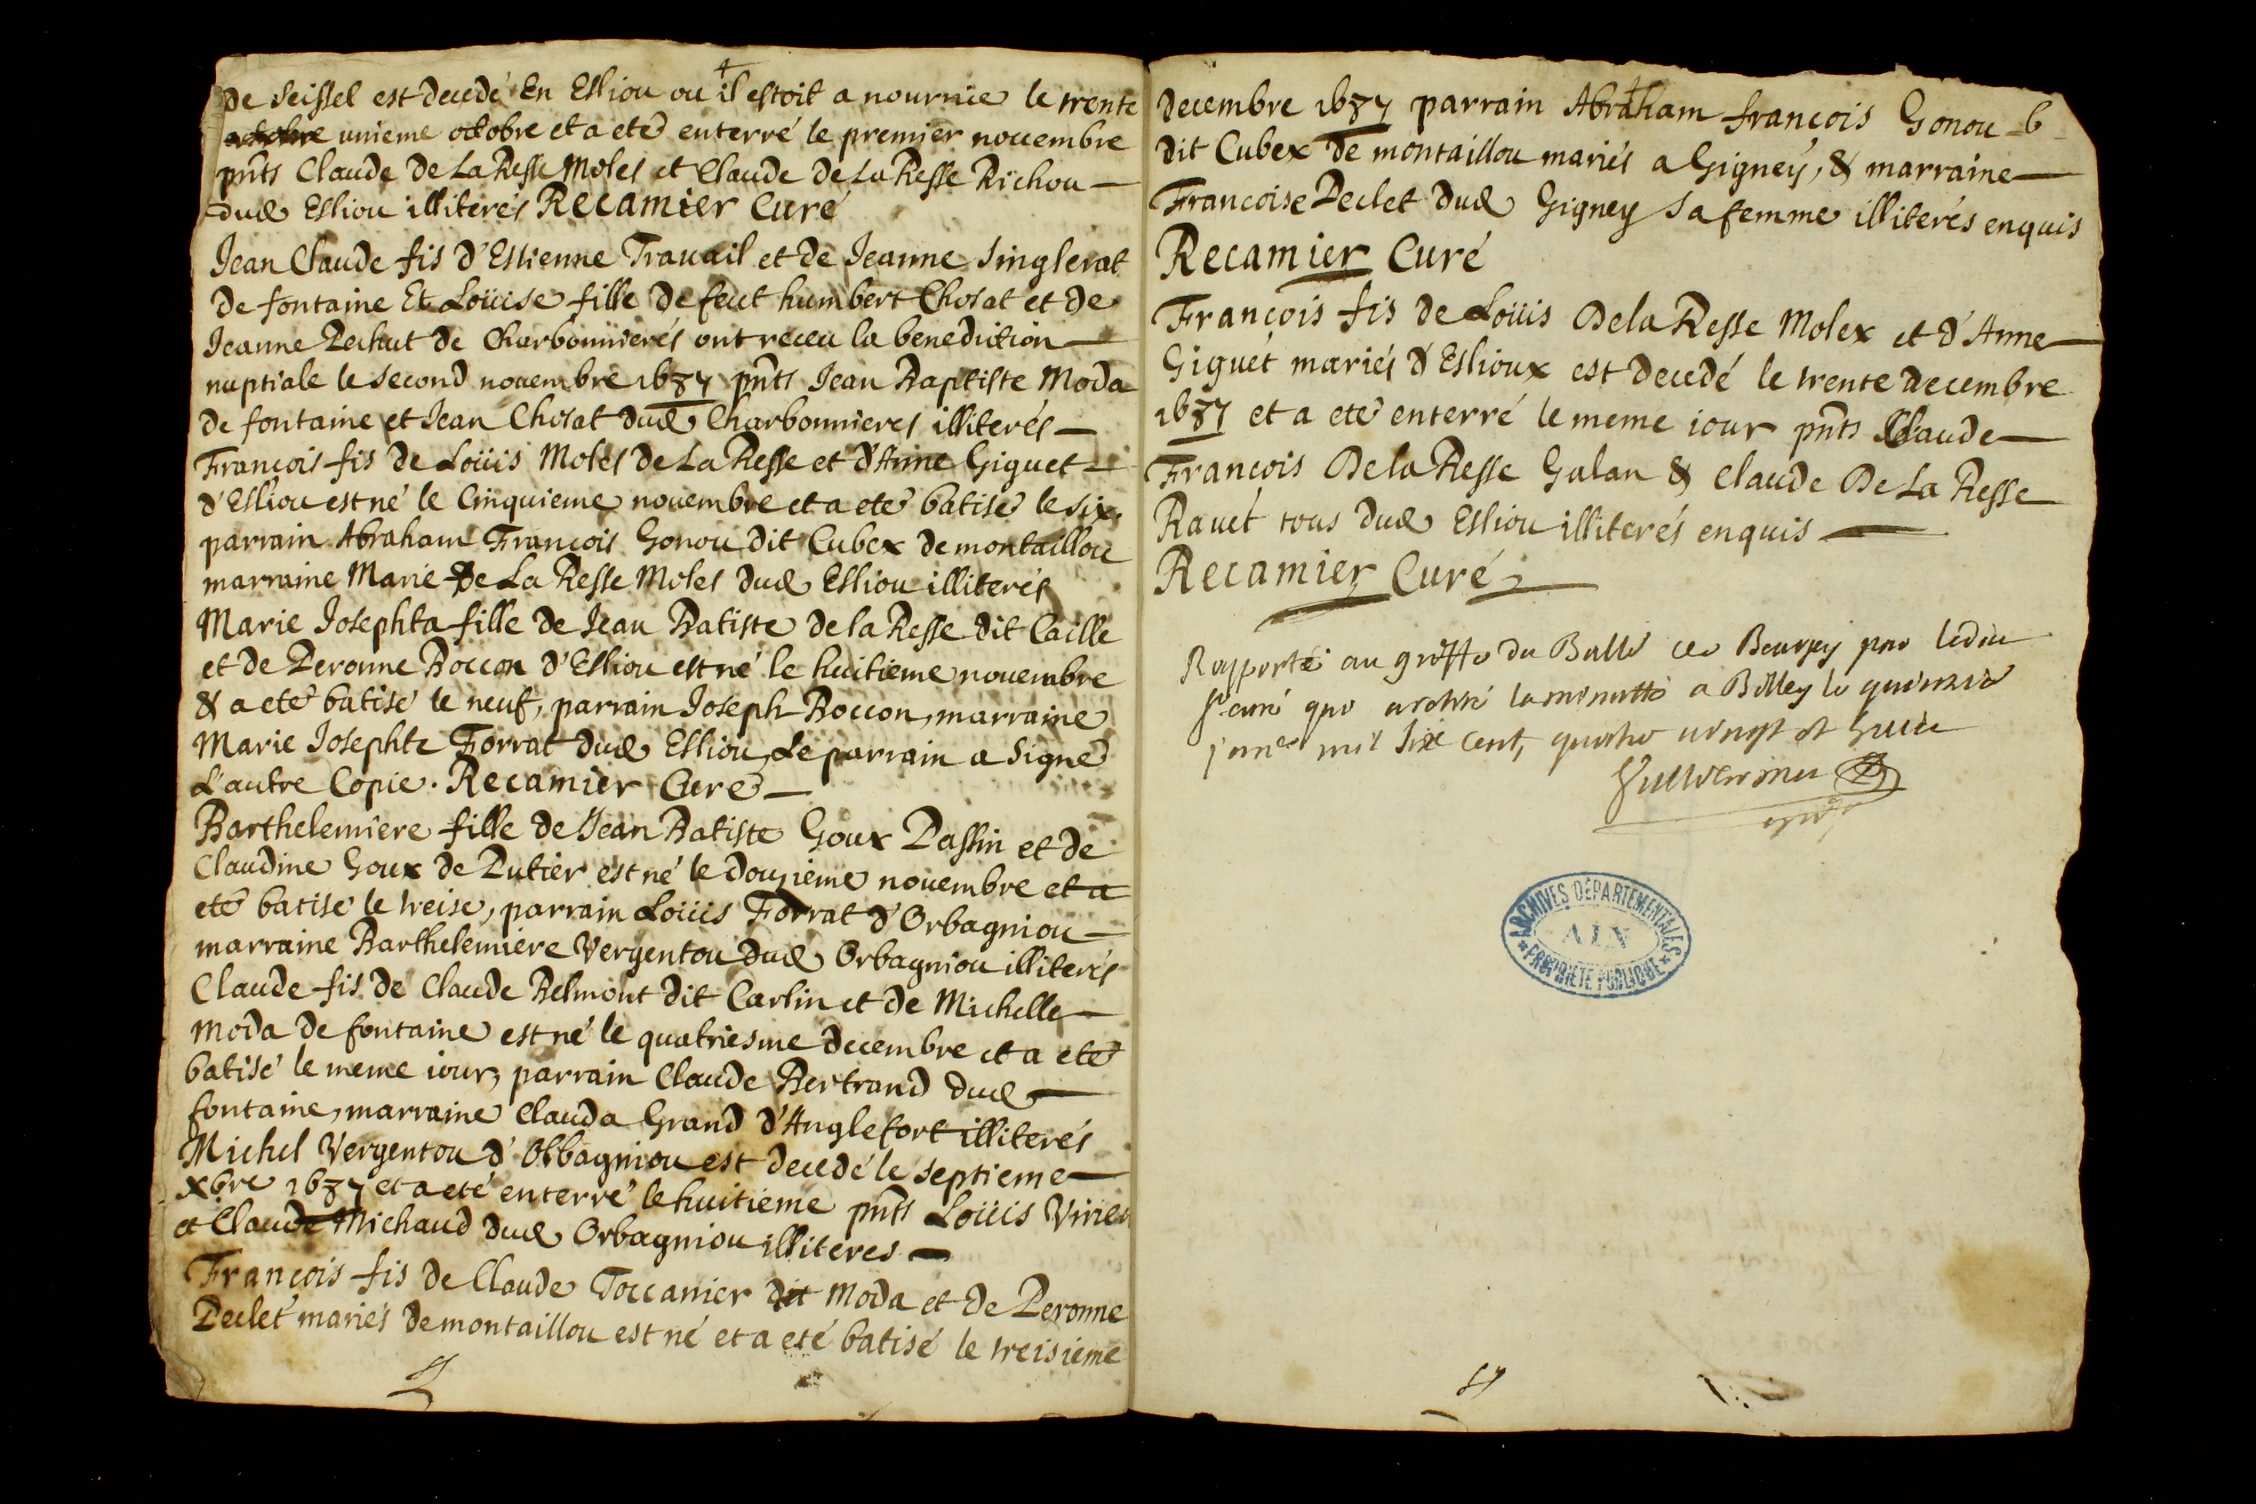 de Seissel est decedé En Esliou ou il estoit a nourrice le trente
octobre unieme octobre et a eté enterré le premier nouembre
pnts Claude de La Resse Moles et Claude de La Resse Richou
dud Esliou illiterés Recamier Curé
Jean Claude fis d'Estienne Trauail et de Jeanne Singlerat
de fontaine Et Loüise fille de feut humbert Chosat et de
Jeanne Pechut de Charbonnierés ont receu la benediction
nuptiale le second nouembre 1687 pnts Jean Baptiste Moda
de fontaine et Jean Chosat dud Charbonnieres illiterés
François fis de Loüis Moles de La Resse et d'Anne Giguet
d'Esliou est né le Cinquieme nouembre et a eté batisé le six,
parrain Abraham François Gonou dit Cubex de montaillou
marraine Marie De La Resse Moles dud Esliou illiterés
Marie Josephta fille de Jean Batiste de la Resse dit Caille
et de Peronne Boccon d'Esliou est né le huitieme nouembre
& a eté batisé le neuf, parrain Joseph Boccon, marraine
Marie Josephte Forrat dud Esliou, Le parrain a signé
L'autre Copie. Recamier Curé
Barthelemiere fille de Jean Batiste Goux Passin et de
Claudine Goux de Putier est né le douzieme nouembre et a
eté batisé le treise, parrain Loüis Forrat d'Orbagniou
marraine Barthelemiere Vergentou dud Orbagniou illiterés
Claude fis de Claude Belmont dit Carlin et de Michelle
Moda de fontaine est né le quatriesme decembre et a eté
batisé le meme iour, parrain Claude Bertrand dud
fontaine, marraine Clauda Grand d'Anglefort illiterés
Michel Vergentou d'Orbagniou est decedé le septieme
xbre 1687 et a eté enterré le huitieme pnts Loüis Virieu
et Claude Michaud dud Orbagniou illiteres
François fis de Claude Toccanier dit Moda et de Peronne
Peclet mariés de montaillou est né et a eté batisé le treisieme
decembre 1687 parrain Abraham françois Gonou 6
dit Cubex De montaillou mariés a Gigney, & marraine
Francoise Peclet dud Gigney sa femme illiterés enquis
Recamier Curé
François fis de Loüis De la Resse Molex et d'Anne
Giguet mariés d'Eslioux est decedé le trente decembre
1687 et a eté enterré le meme iour pnts Claude
François De la Resse Galan & Claude De La Resse
Rauet tous dud Esliou illiterés enquis
Recamier Curé
Rapporté au greffe du Balle de Beugey par ledit
Sr curé qui a retiré la minutte a Belley le quinzie
janer mil six cent, quatre vingt et huict
ARCHIVES DÉPARTEMENTALES
AIN
PROPRIÉTÉ PUBLIQUE